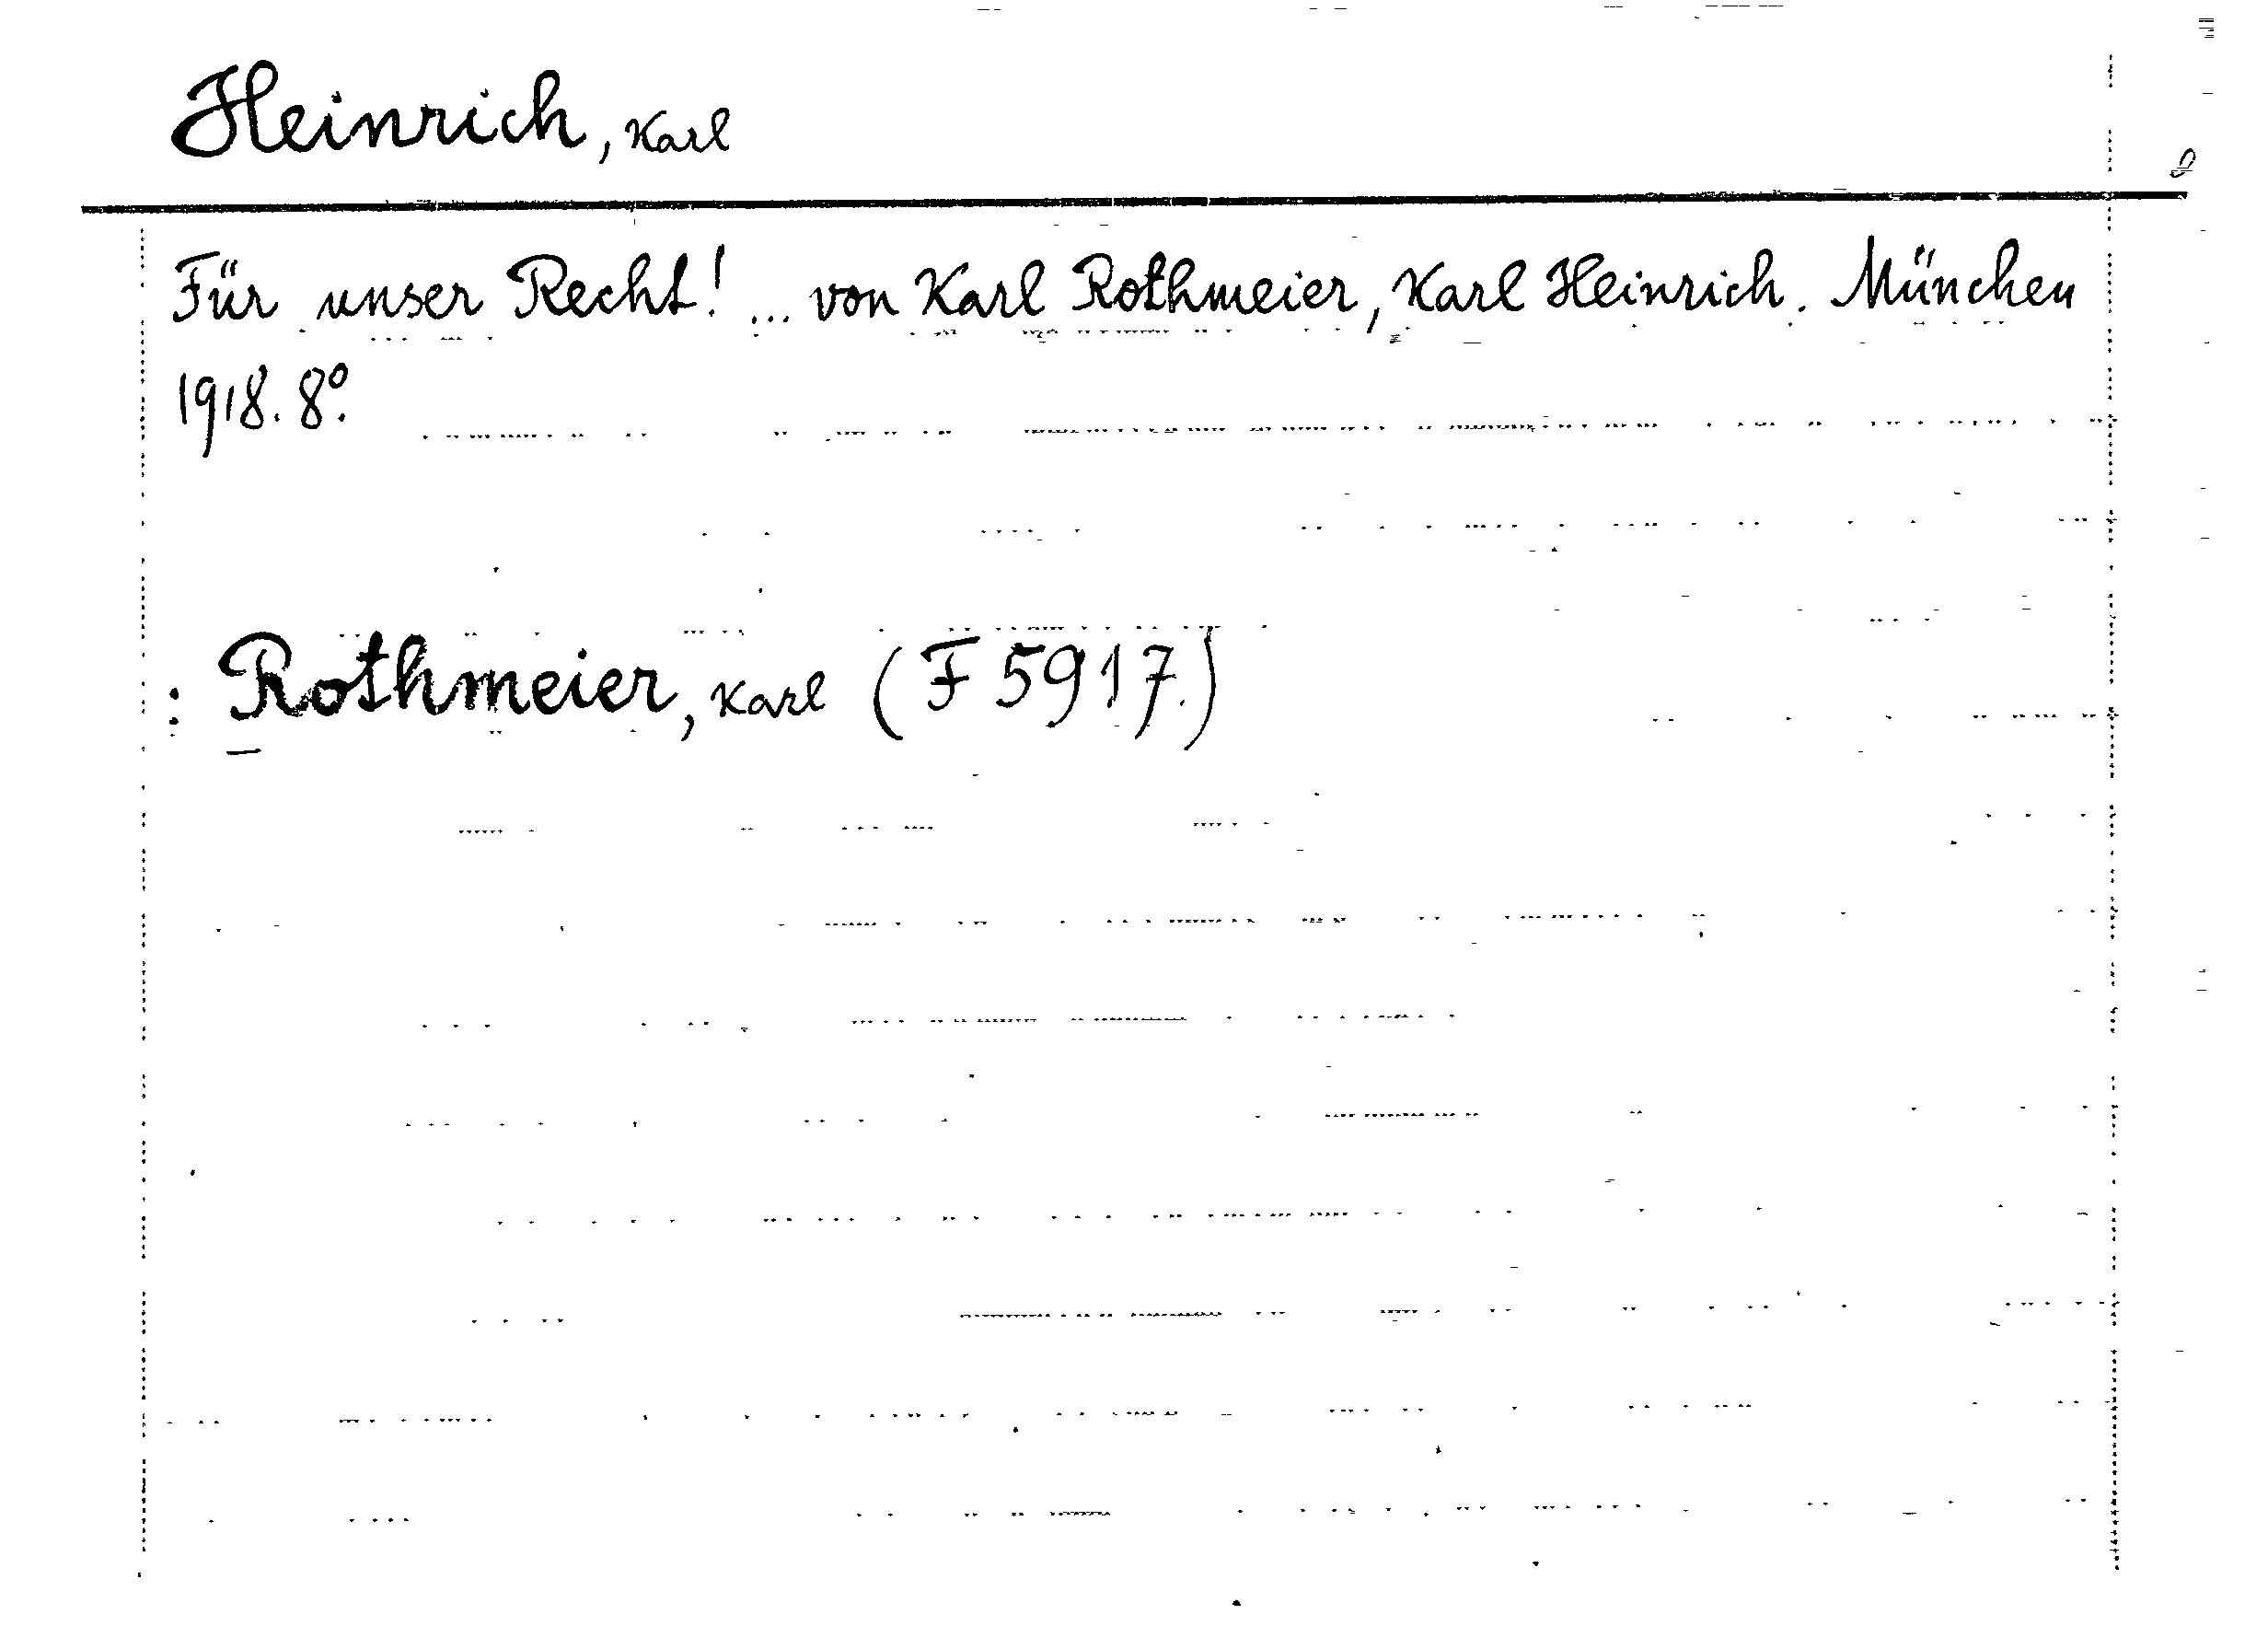 Heinrich, Karl
Für unser Recht! ... von Karl Rothmeier, Karl Heinrich. München
1918. 8º.
: Rothmeier, Karl (F 5917.)